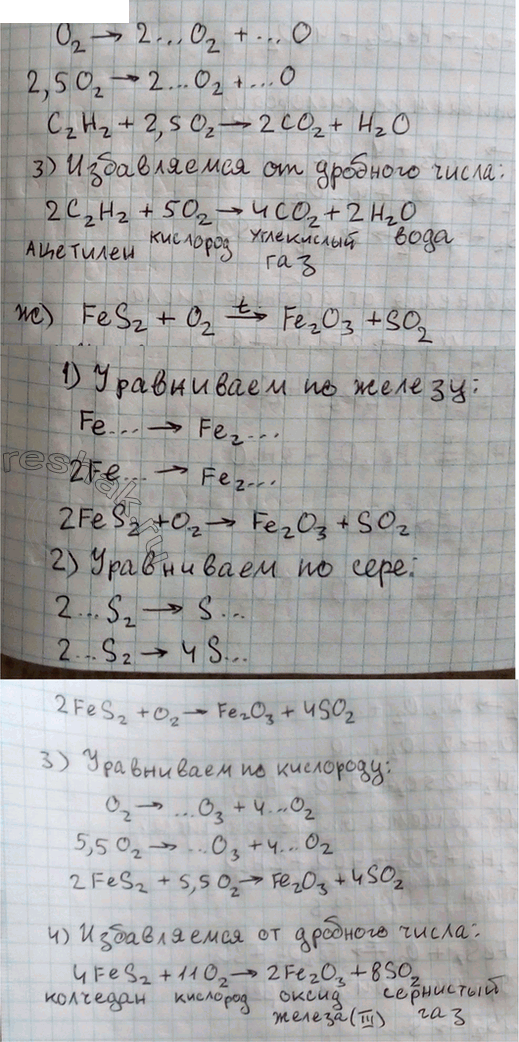 O₂ → 2...O₂ + ...O
2,5O₂ → 2...O₂ + ...O
C₂H₂ + 2,5O₂ → 2CO₂ + H₂O
3) Избавляемся от дробного числа:
2C₂H₂ + 5O₂ → 4CO₂ + 2H₂O
Ацетилен кислород углекислый вода
газ
ж) FeS₂ + O₂ →ᵗ Fe₂O₃ + SO₂
1) Уравниваем по железу:
Fe... → Fe₂...
2Fe... → Fe₂...
2FeS₂ + O₂ → Fe₂O₃ + SO₂
2) Уравниваем по сере:
2...S₂ → S...
2...S₂ → 4S...
2FeS₂ + O₂ → Fe₂O₃ + 4SO₂
3) Уравниваем по кислороду:
O₂ → ...O₃ + 4...O₂
5,5O₂ → ...O₃ + 4...O₂
2FeS₂ + 5,5O₂ → Fe₂O₃ + 4SO₂
4) Избавляемся от дробного числа:
4FeS₂ + 11O₂ → 2Fe₂O₃ + 8SO₂
колчедан кислород оксид сернистый
железа(III) газ
reshak.ru